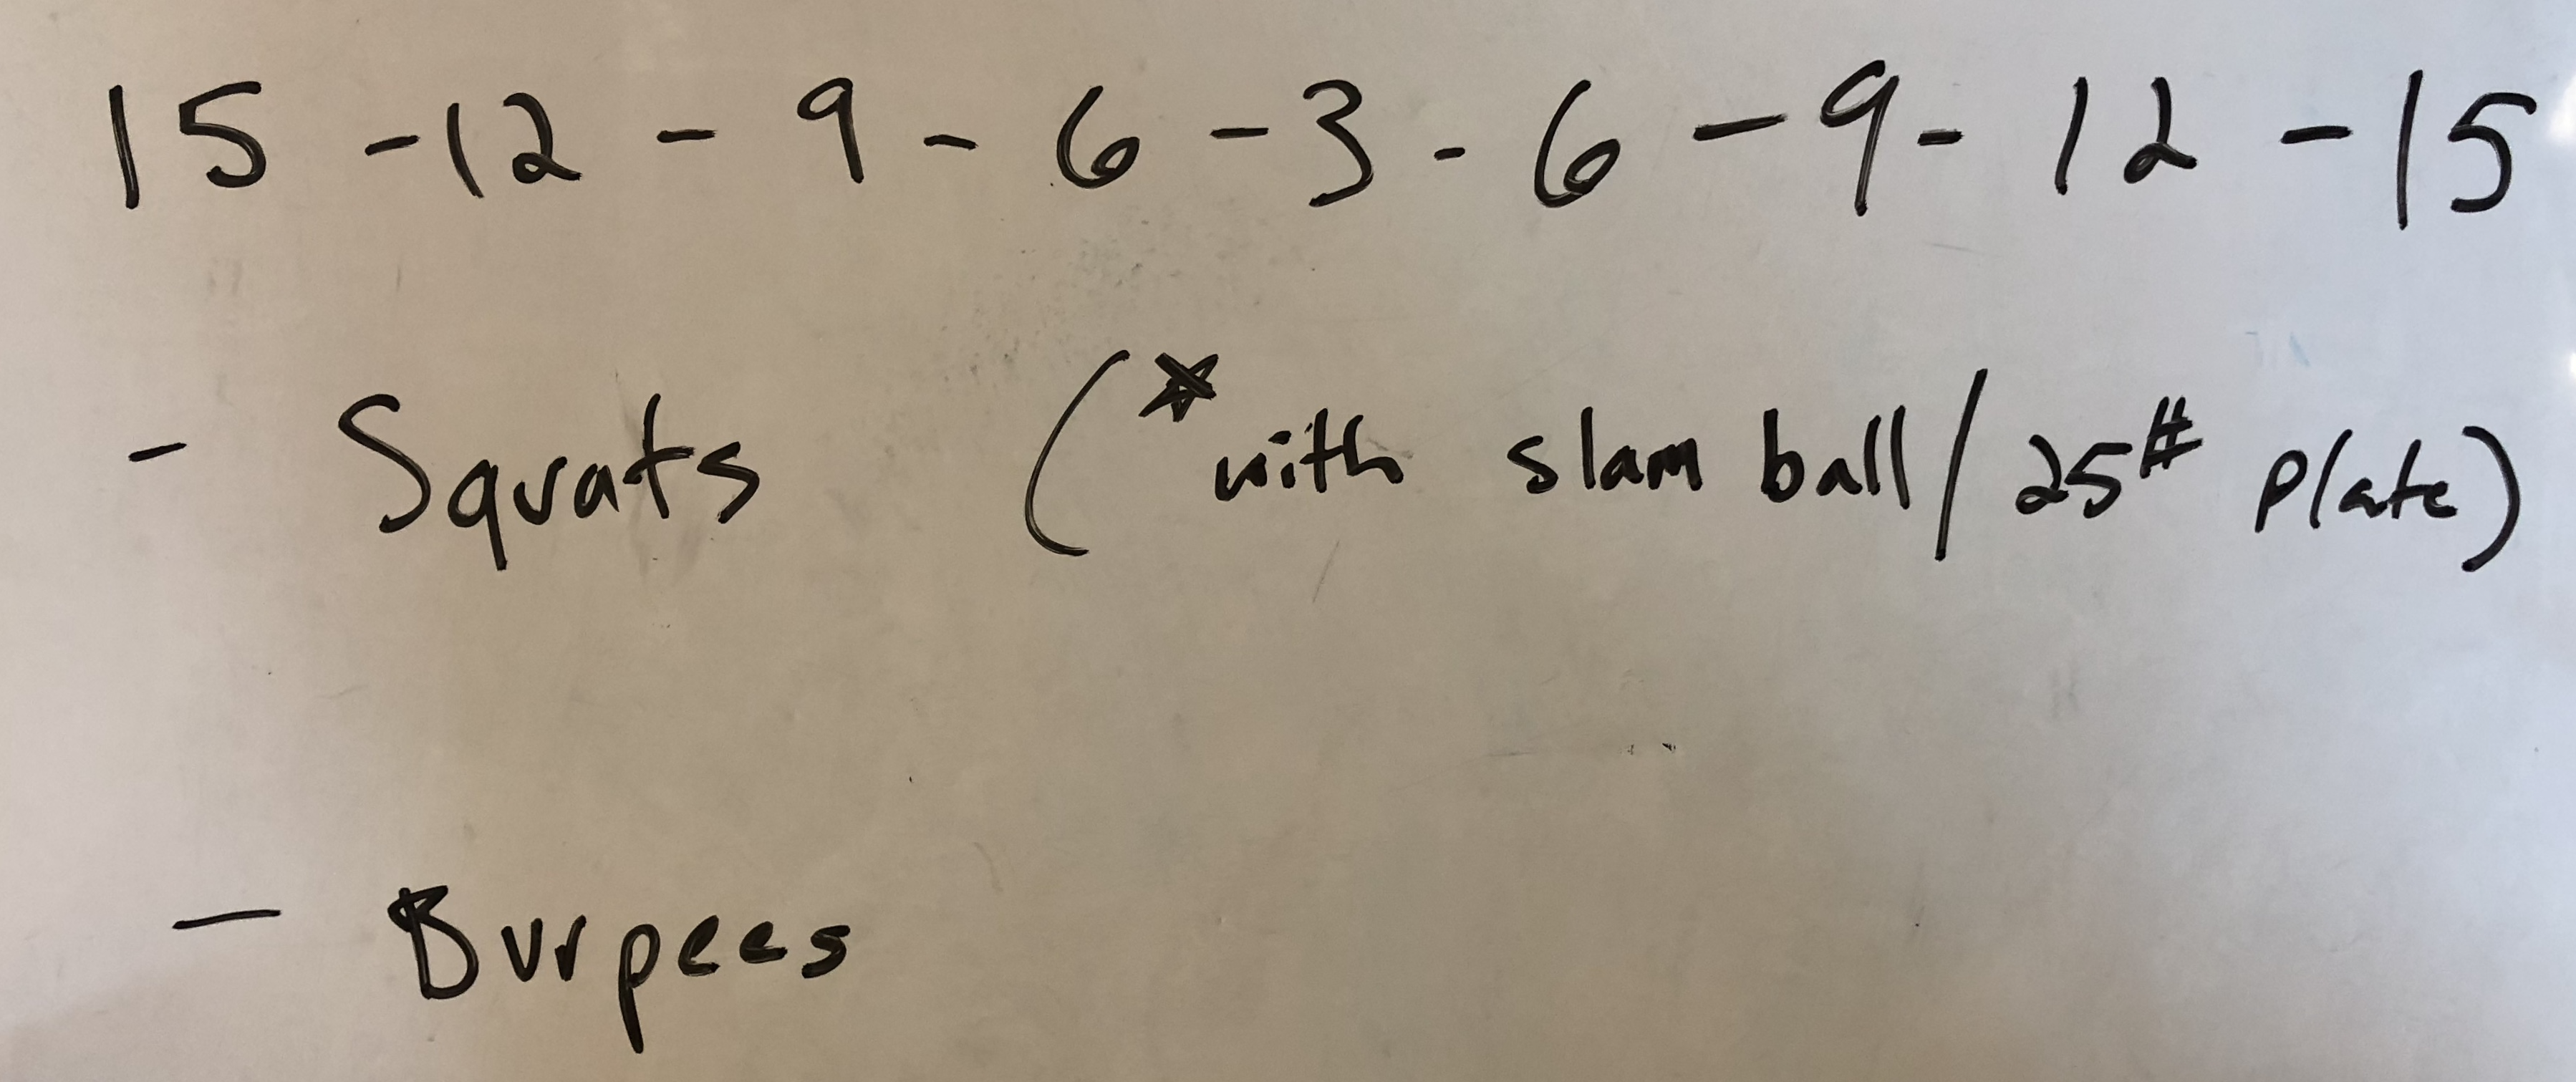 15 - 12 - 9 - 6 - 3 - 6 - 9 - 12 - 15
- Squats (*with slam ball / 25# plate)
- Burpees